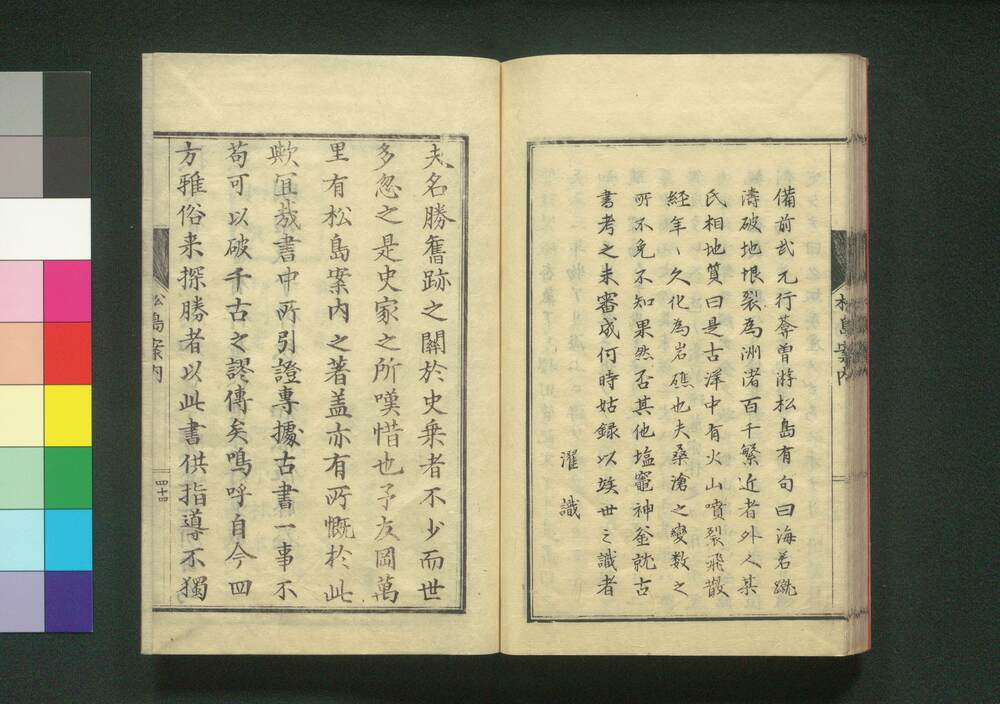 備前武元行荐曽游松島有句曰海若蹴
濤破地垠裂為洲渚百千繁近者外人某
氏相地質曰是古洋中有火山噴裂飛散
経年ヽ久化為岩礁也夫桑滄之變数之
所不免不知果然否其他塩竈神釜就古
書考之未審成何時姑録以俟世之識者
濯識
松島案内
夫名勝舊跡之關於史乗者不少而世
多忽之是史家之所嘆惜也予友岡萬
里有松島案内之著盖亦有所慨於此
歟冝哉書中所引證專據古書一事不
苟可以破千古之謬傳矣鳴呼自今四
方雅俗来探勝者以此書供指導不獨
松島案内
四十四